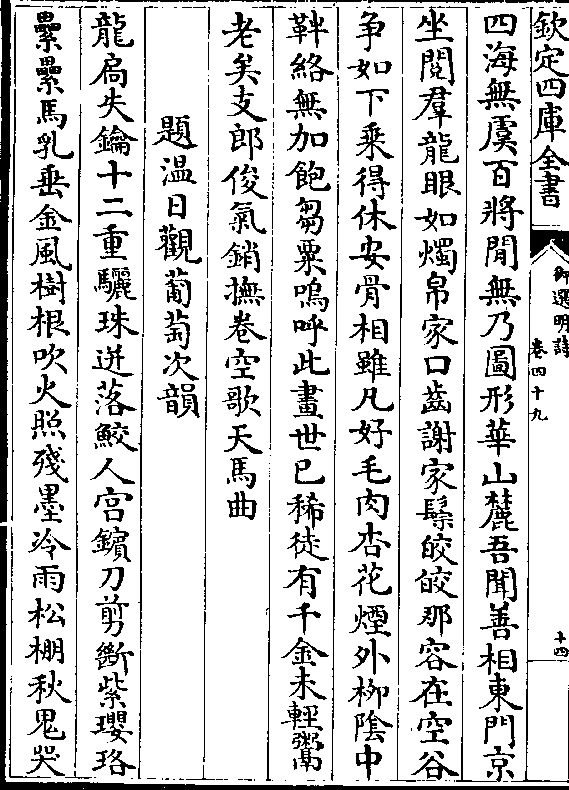 欽定四庫全書
御選明詩
卷四十九
十四
四海無虞百將閒無乃圖形華山麓吾聞善相東門京
坐閱羣龍眼如燭帛家口齒謝家鬃皎皎那容在空谷
争如下乗得休安骨相雖凡好毛肉杏花煙外栁隂中
靽絡無加飽芻粟嗚呼此畫世已稀徒有千金未輕鬻
老矣支郎俊氣銷撫卷空歌天馬曲
題温日觀葡萄次韻
龍扄失鑰十二重驪珠迸落鮫人宫鑌刀剪斷紫瓔珞
纍纍馬乳垂金風樹根吹火照殘墨冷雨松棚秋鬼哭